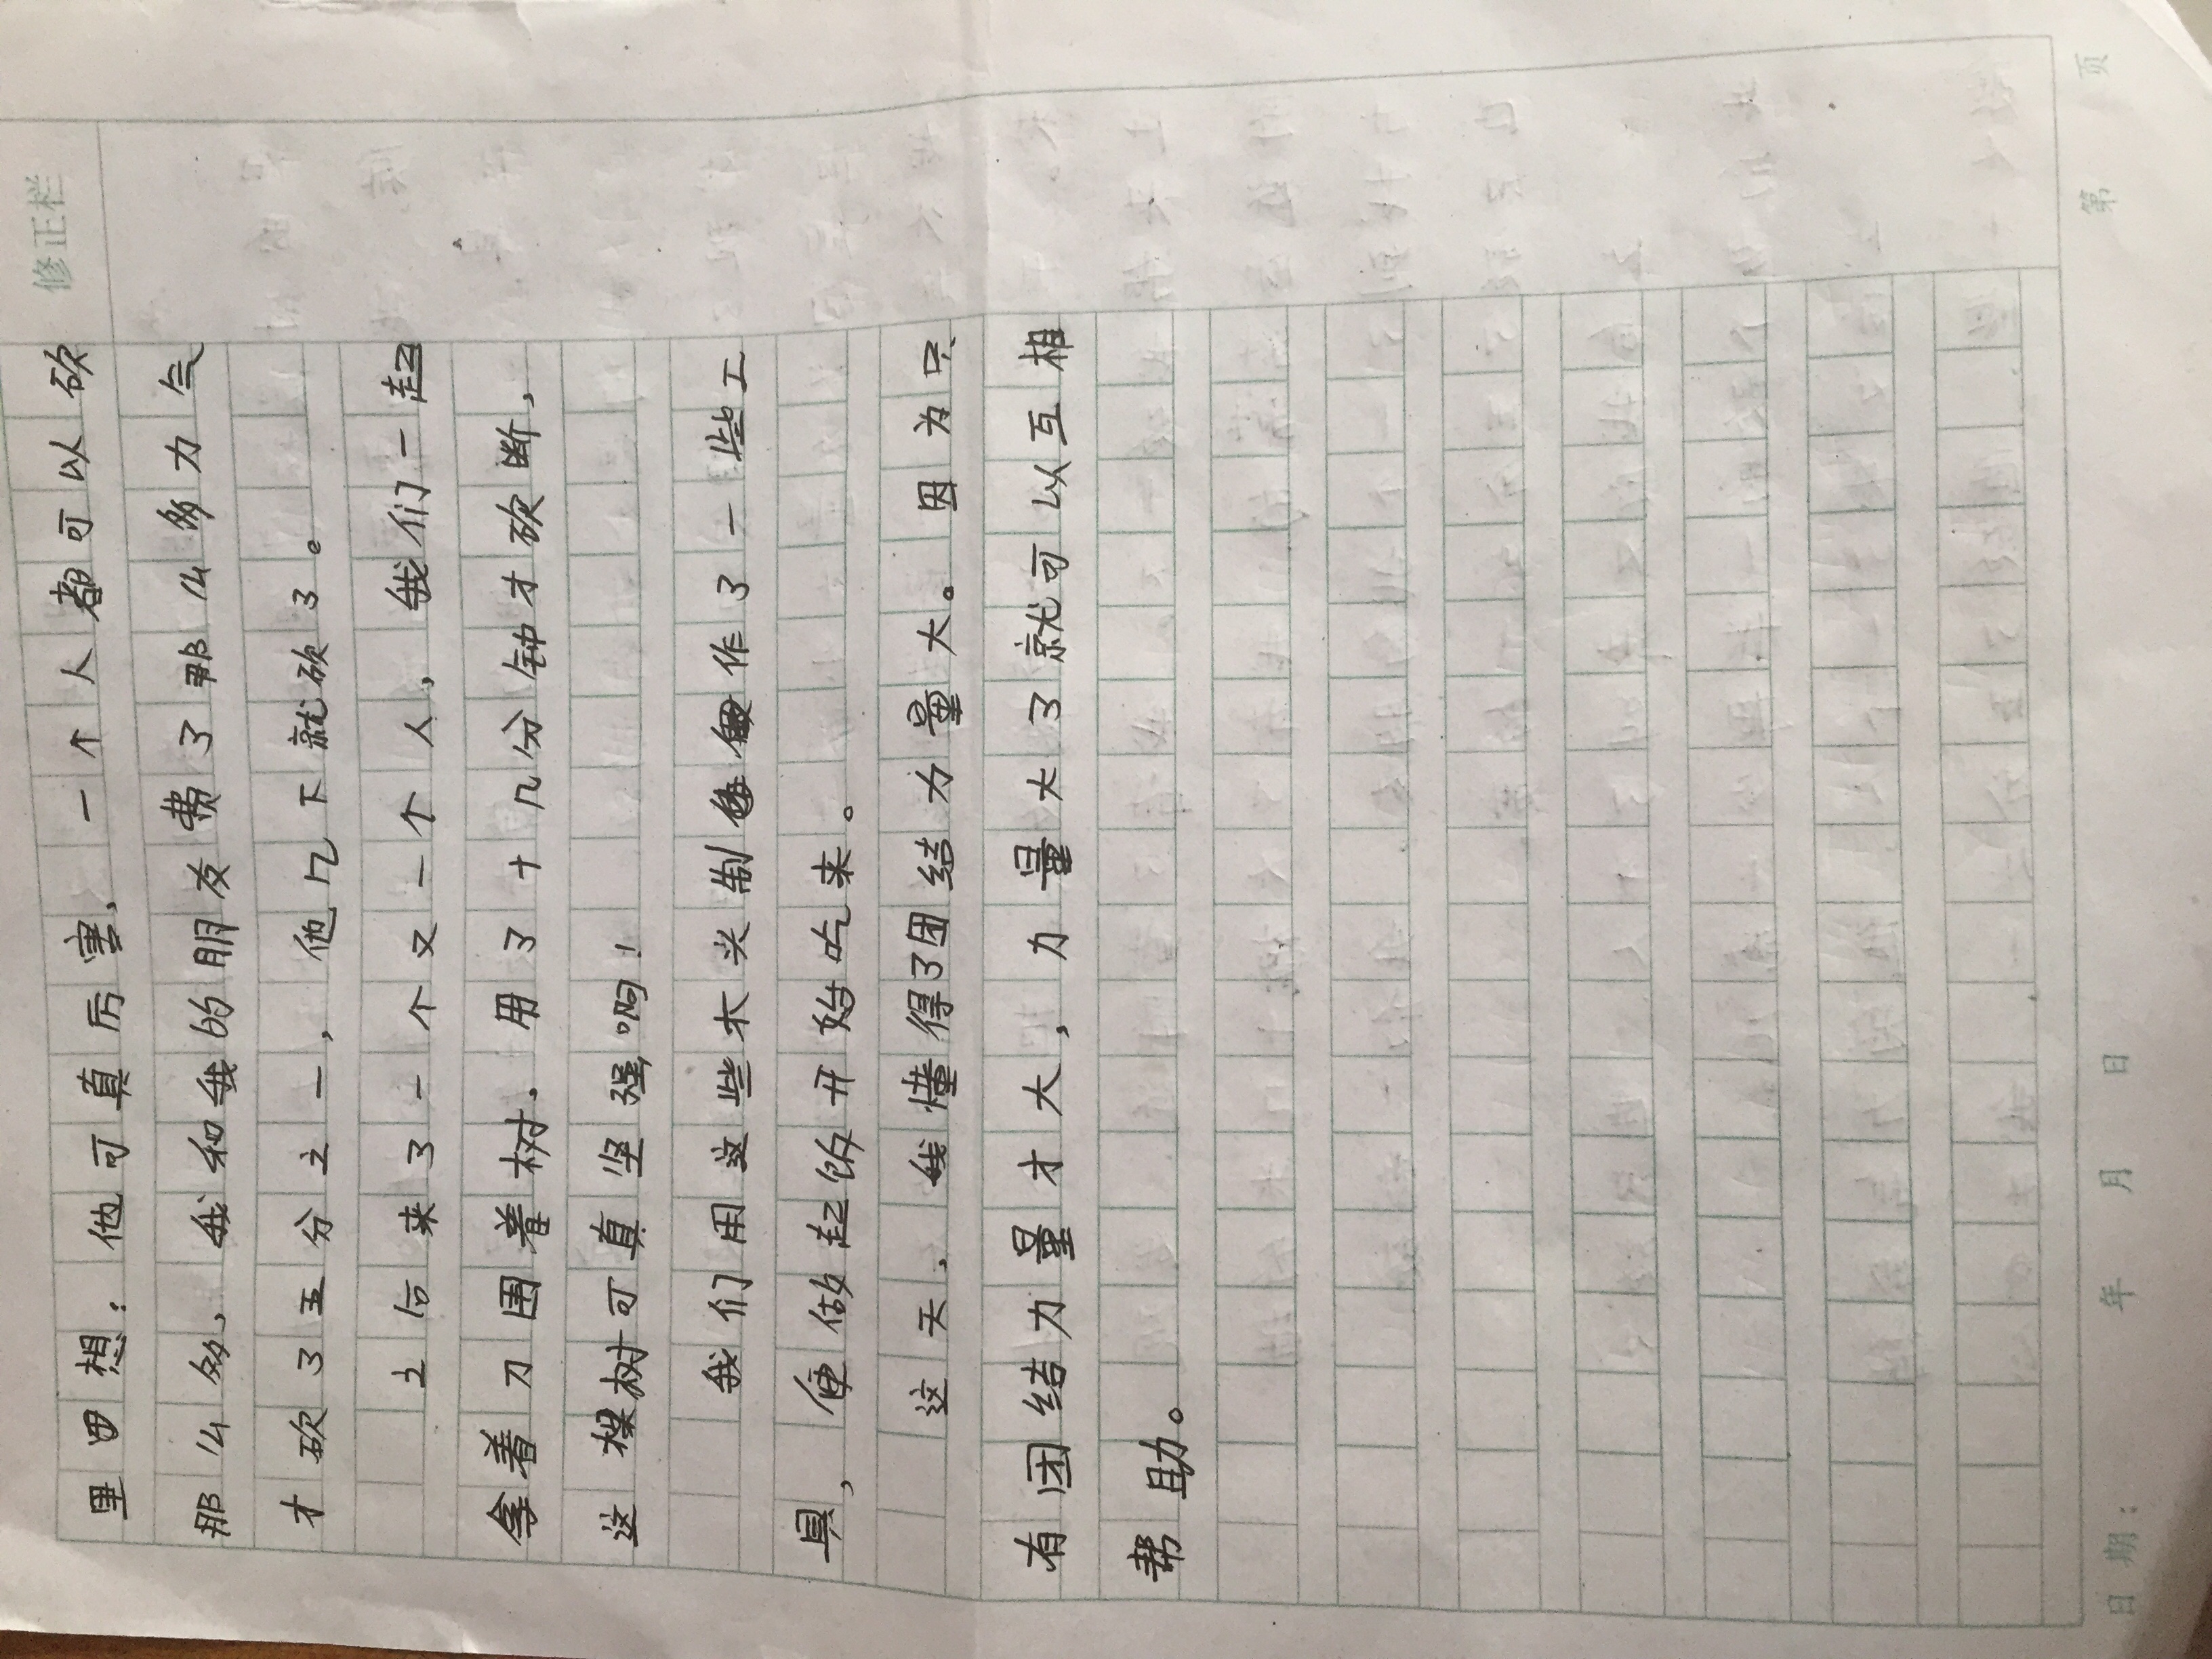 修正栏
里想：他可真厉害，一个人都可以砍
那么多，我和我的朋友费了那么多力气
才砍了五分之一，他几下就砍了。
之后来了一个又一个人，我们一起
拿着刀围着树，用了十几分钟才砍断，
这棵树可真坚强啊！
我们用这些木头制作了一些工
具，便做起饭开始吃来。
这天，我懂得了团结力量大。因为只
有团结力量才大，力量大了就可以互相
帮助。
日期： 年 月 日 第 页